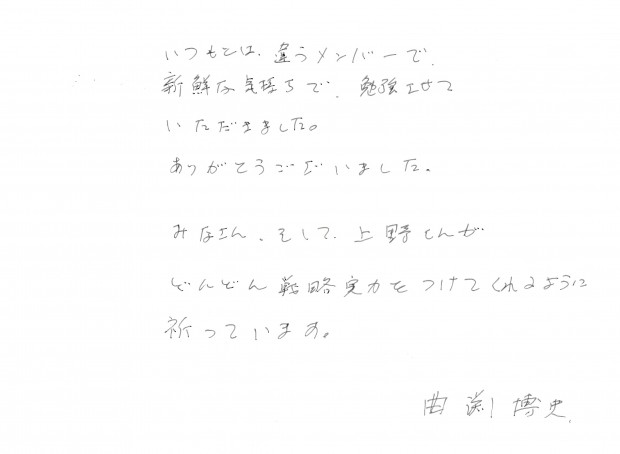 いつもとは、違うメンバーで、
新鮮な気持ちで、勉強させて
いただきました。
ありがとうございました。
みなさん、そして、上野さんが
どんどん戦略実力をつけてくれるように
祈っています。
曲渕 博史